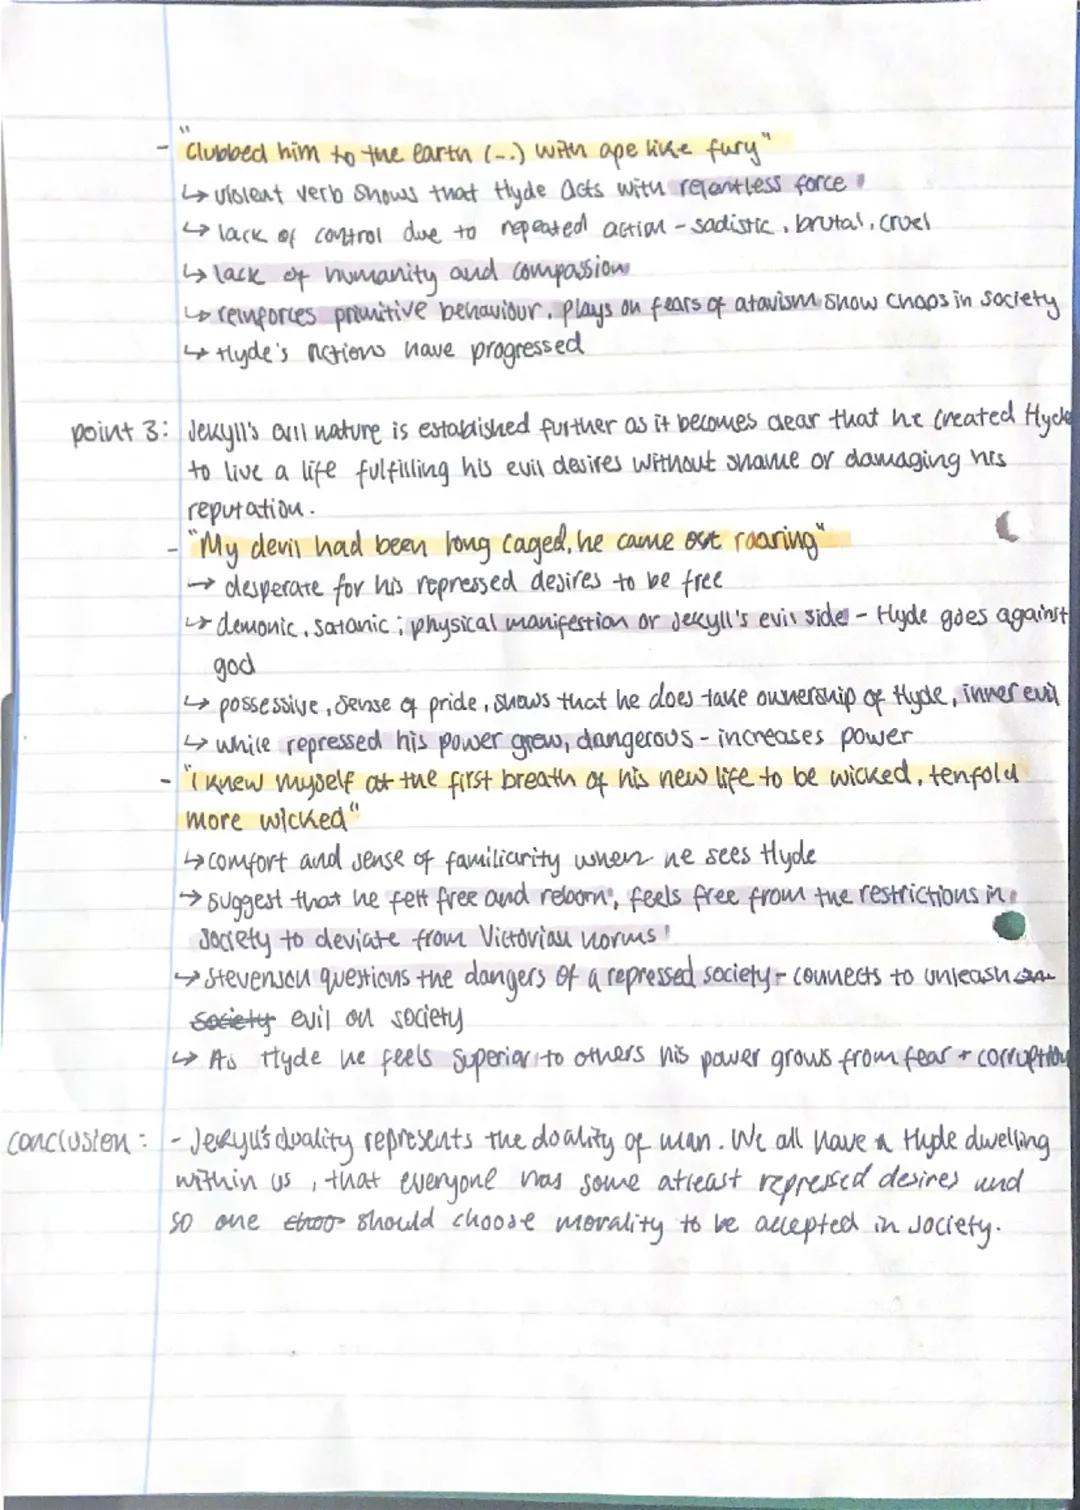 - "clubbed him to the earth (...) with ape like fury"
↳ violent verb shows that Hyde acts with relentless force
↳ lack of control due to repeated action - sadistic, brutal, cruel
↳ lack of humanity and compassion
↳ reinforces primitive behaviour, plays on fears of atavism show chaos in society
↳ Hyde's actions have progressed
point 3: Jekyll's evil nature is established further as it becomes clear that he created Hyde
to live a life fulfilling his evil desires without shame or damaging his
reputation.
- "My devil had been long caged, he came out roaring"
→ desperate for his repressed desires to be free
↳ demonic, satanic; physical manifestion or Jekyll's evil side - Hyde goes against
god
↳ possessive, sense of pride, shows that he does take ownership of Hyde, inner evil
↳ while repressed his power grew, dangerous - increases power
- "i knew myself at the first breath of his new life to be wicked, tenfold
more wicked"
↳ comfort and sense of familiarity when he sees Hyde
→ suggest that he felt free and reborn, feels free from the restrictions in
society to deviate from Victorian norms
↳ Stevenson questions the dangers of a repressed society - connects to unleash
society evil on society
↳ As Hyde he feels superior to others his power grows from fear + corruption
conclusion: - Jekyll's duality represents the doality of man. We all have a Hyde dwelling
within us, that everyone has some atleast repressed desires and
so one choo should choose morality to be accepted in society.